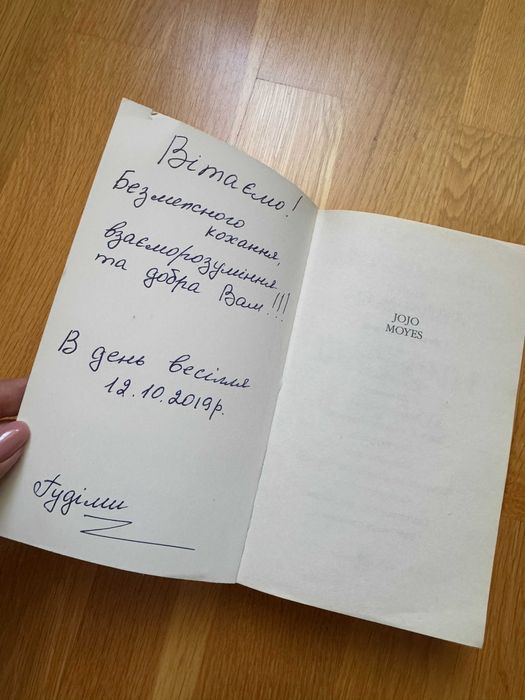 Вітаємо!
Безмежного
кохання,
взаєморозуміння
та добра Вам!!!
В день весілля
12.10.2019р.
Гудіми
JOJO
MOYES